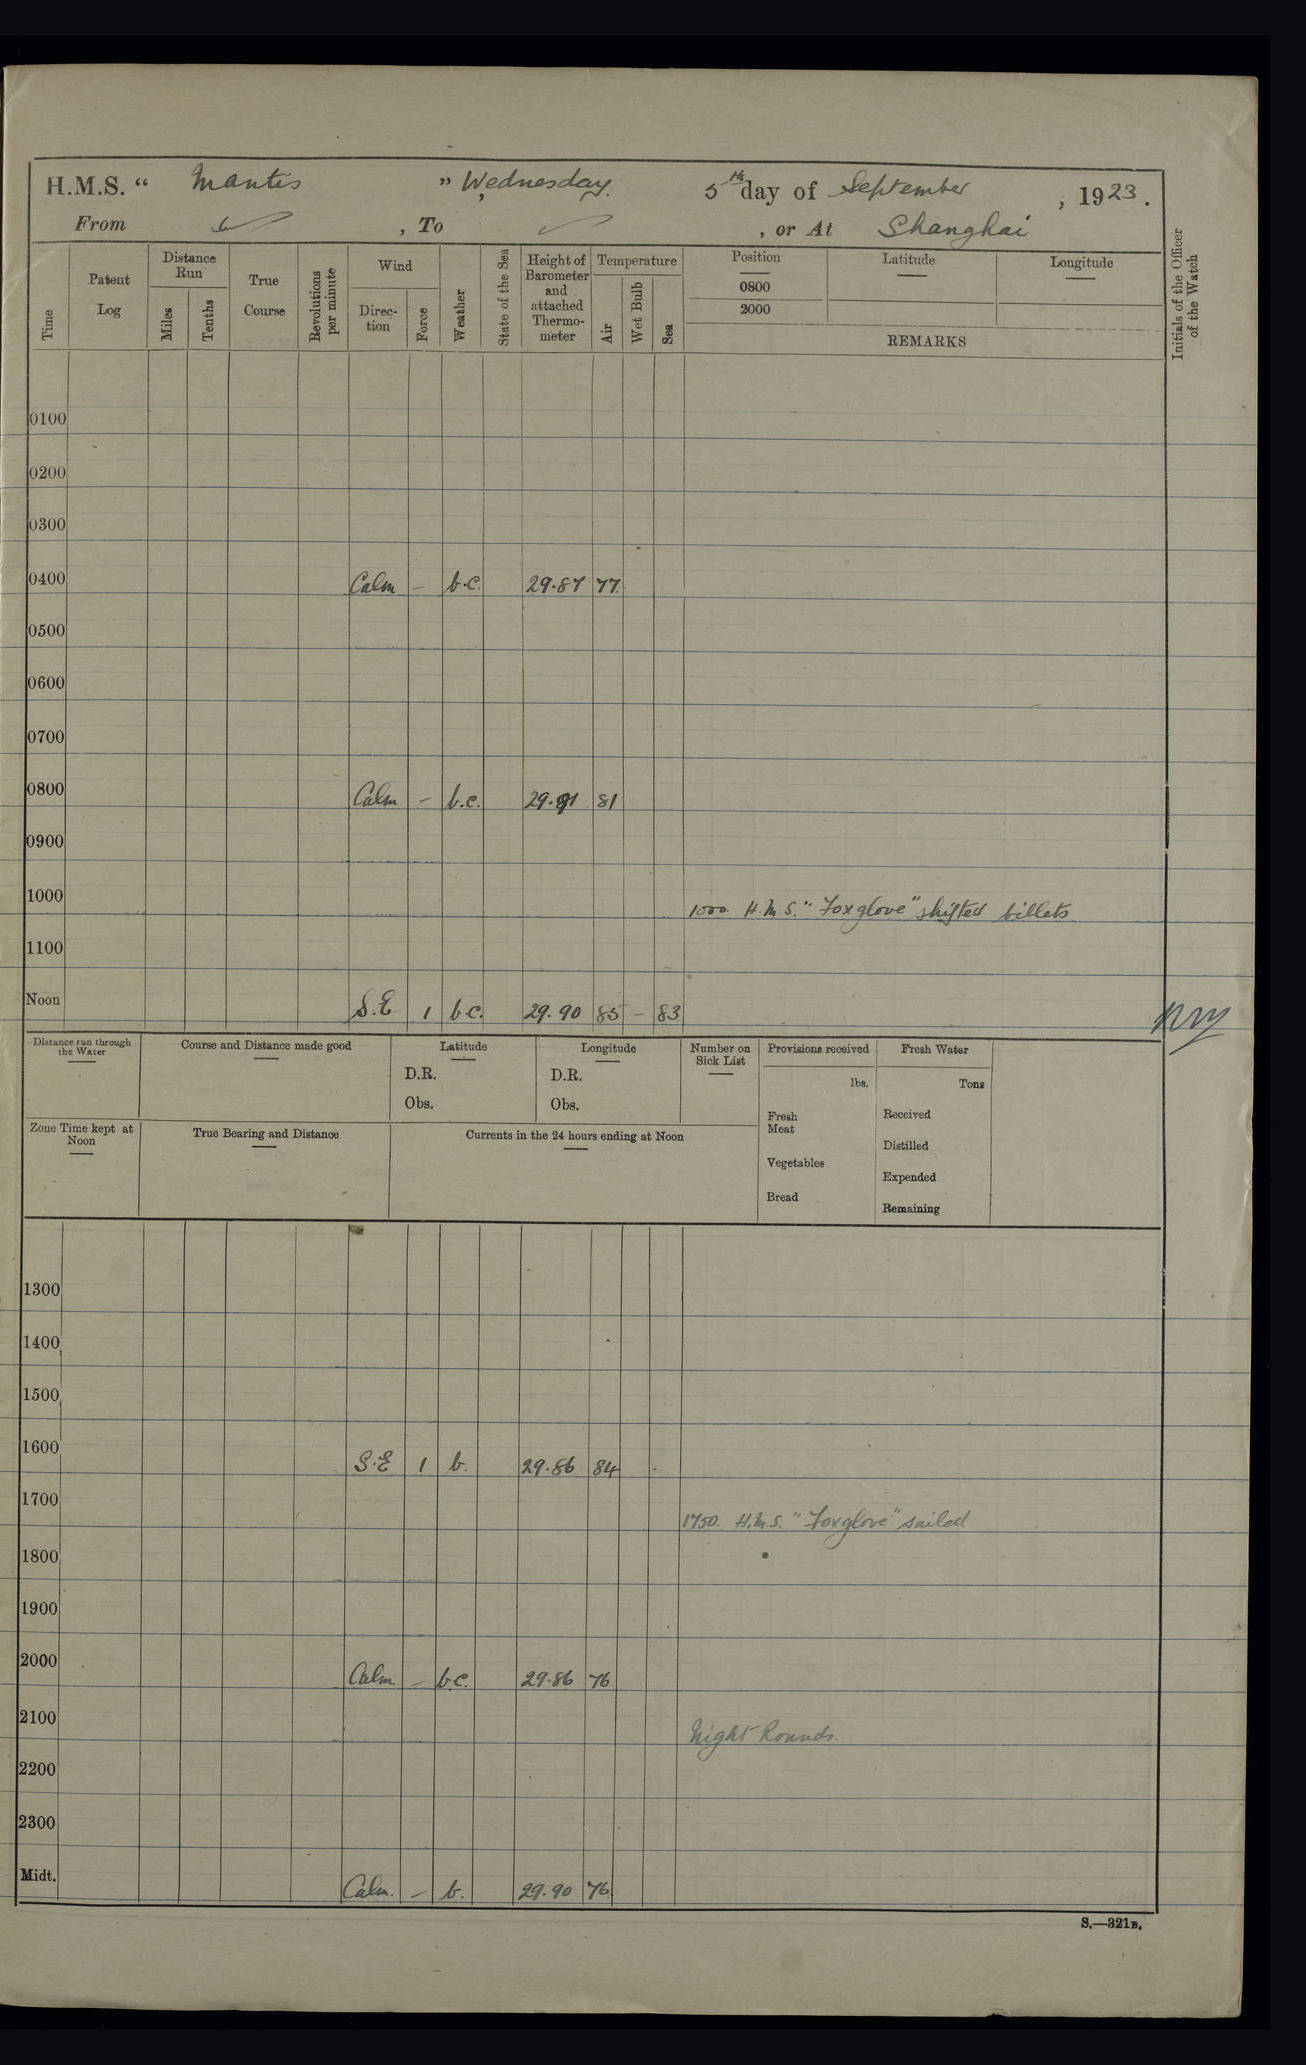 H.M.S. “ Mantis ” Wednesday. 5th day of September , 1923.
From , To , or At Shanghai
Time Patent Log Distance Run Miles Tenths True Course Revolutions per minute Wind Direc-tion Force Weather State of the Sea Height of Barometer and attached Thermo-meter Temperature Air Wet Bulb Sea Position 0800 2000 Latitude Longitude REMARKS Initials of the Officer of the Watch
0100
0200
0300
0400 Calm – b.c. 29.87 77.
0500
0600
0700
0800 Calm – b.c. 29.91 81
0900
1000 1000 H.M.S. "Foxglove" shifted billets
1100
Noon S.E 1 b.c. 29.90 85 – 83
Distance run through the Water Course and Distance made good Latitude Longitude Number on Sick List Provisions received Fresh Water
D.R. D.R. lbs. Tons
Obs. Obs. Fresh Meat Received
Zone Time kept at Noon True Bearing and Distance Currents in the 24 hours ending at Noon
Distilled
Vegetables
Expended
Bread
Remaining
1300
1400
1500
1600 S.E 1 b. 29.86 84
1700
1750. H.M.S. "Foxglove" sailed
1800
1900
2000 Calm – b.c. 29.86 76
2100 Night Rounds.
2200
2300
Midt. Calm. – b. 29.90 76
S.—321B.